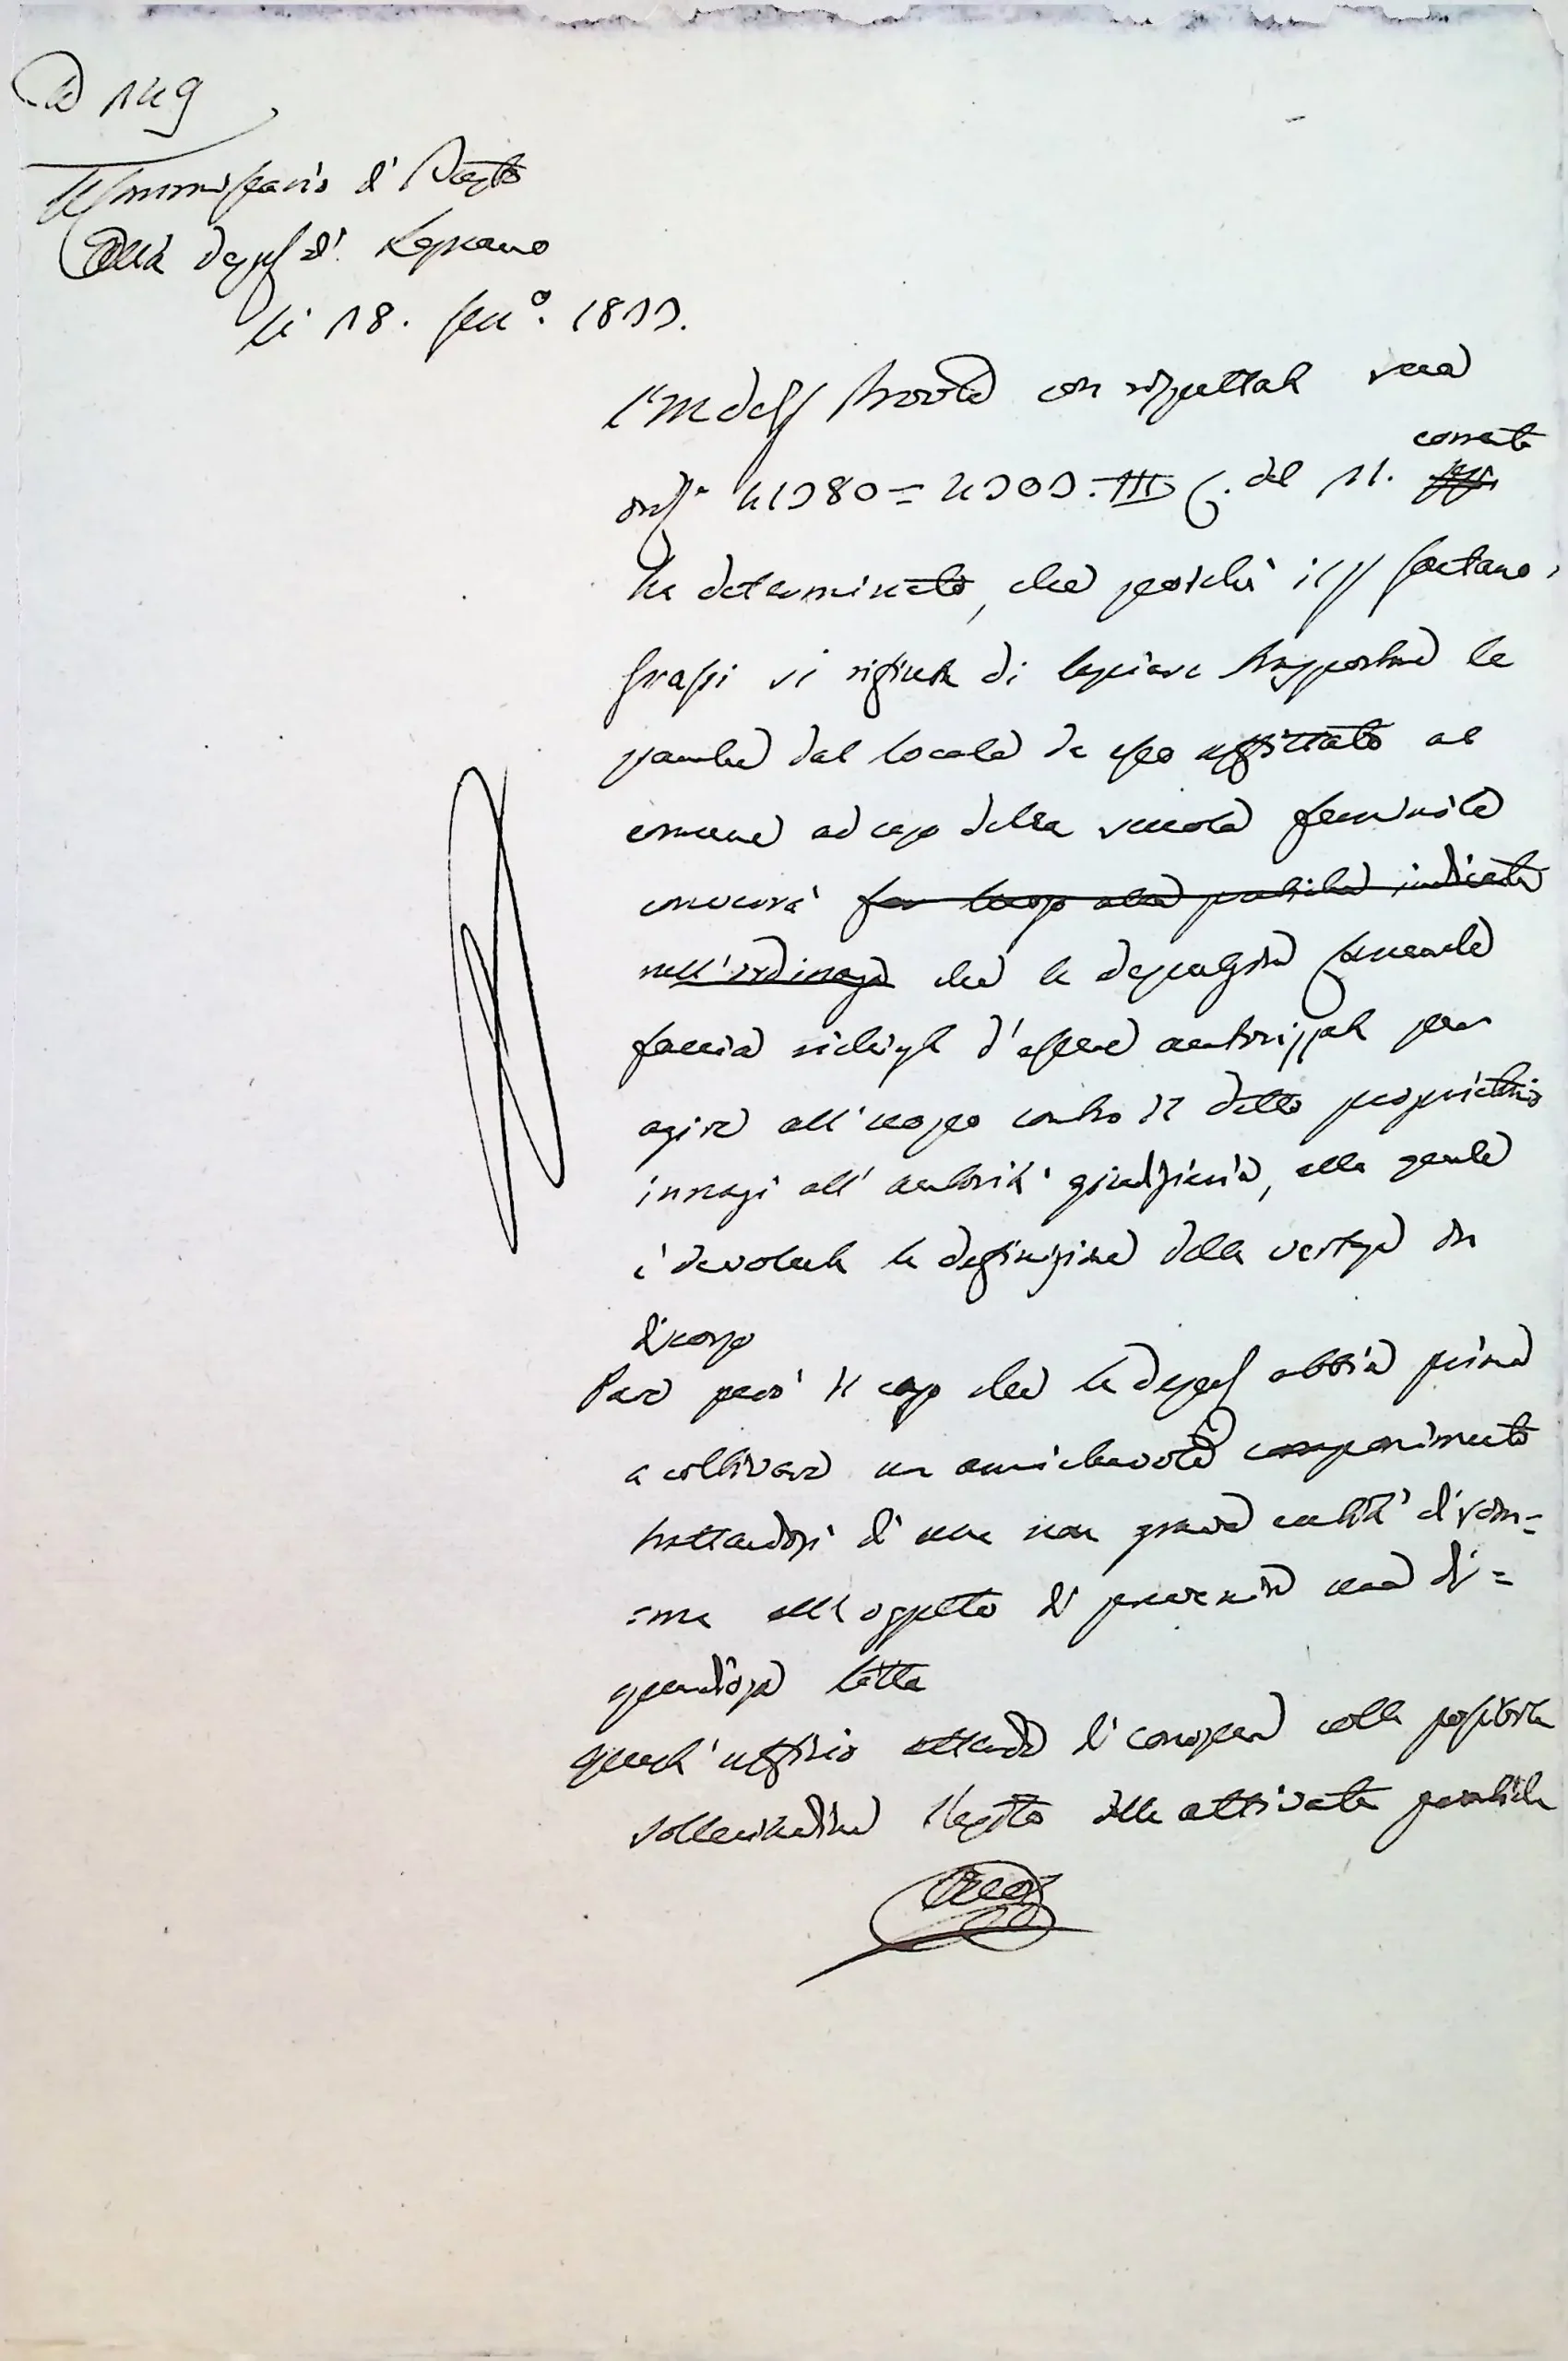 149
Commissario di Distto
Alla Deput di Legnano
li 18. Genº. 1855.
L'I R deleg Provle con rispettata sua
ord 41580=4505.III del 11. corrente
ha determinato, che poichè il Sig Gaetano
Grassi si rifiuta di lasciare trasportare le
panche dal locale da esso affittato al
comune ad uso della scuola feminile
converrà far luogo alle pratiche indicate
nell'ordinanza che la deputazione comunale
faccia richiesta d'essere autorizzata per
agire all'uopo contro il detto proprietario
innazi all'autorità giudiziaria, alla quale
è devoluta la definizione della vertenza in
discorso
Pare però il caso che la deput abbia prima
a coltivare un amichevole componimento
trattandosi di una non grave entità di som=
=ma all'oggetto di prevenire una di=
spendiosa lotta
Quest'uffizio attende di conoscere colla possibile
sollecitudine l'esito delle attivate pratiche